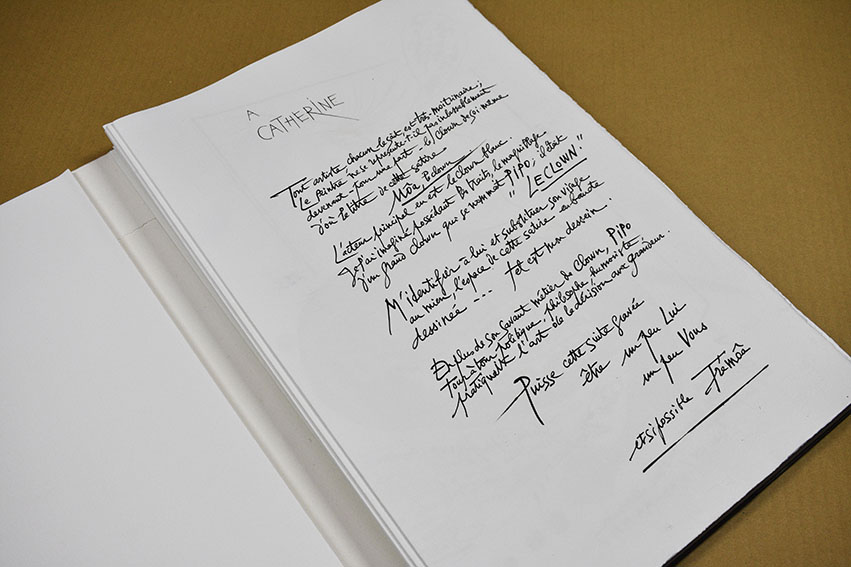 A
CATHERINE
Tout artiste, chacun le sait, est très moitrinaire;
Le Peintre ne se représente-t-il pas inlassablement
devenant - pour une part - le Clown de soi-même
d'où le titre de cette satire
Môa Le clown
L'acteur principal en est le clown blanc.
Je l'ai imaginé possédant les traits, le maquillage
d'un grand clown qui se nommait PIPO; il était
"LE CLOWN".
M'identifier à lui et substituer son visage
au mien, l'espace de cette satire
dessinée --- tel est mon dessein.
En plus de son savant métier de Clown, PIPO
tour à tour poétique, philosophe, humoriste
pratiquait l'art de la dérision avec grandeur.
Puisse cette suite gravée
être un peu Lui
un peu Vous
et si possible